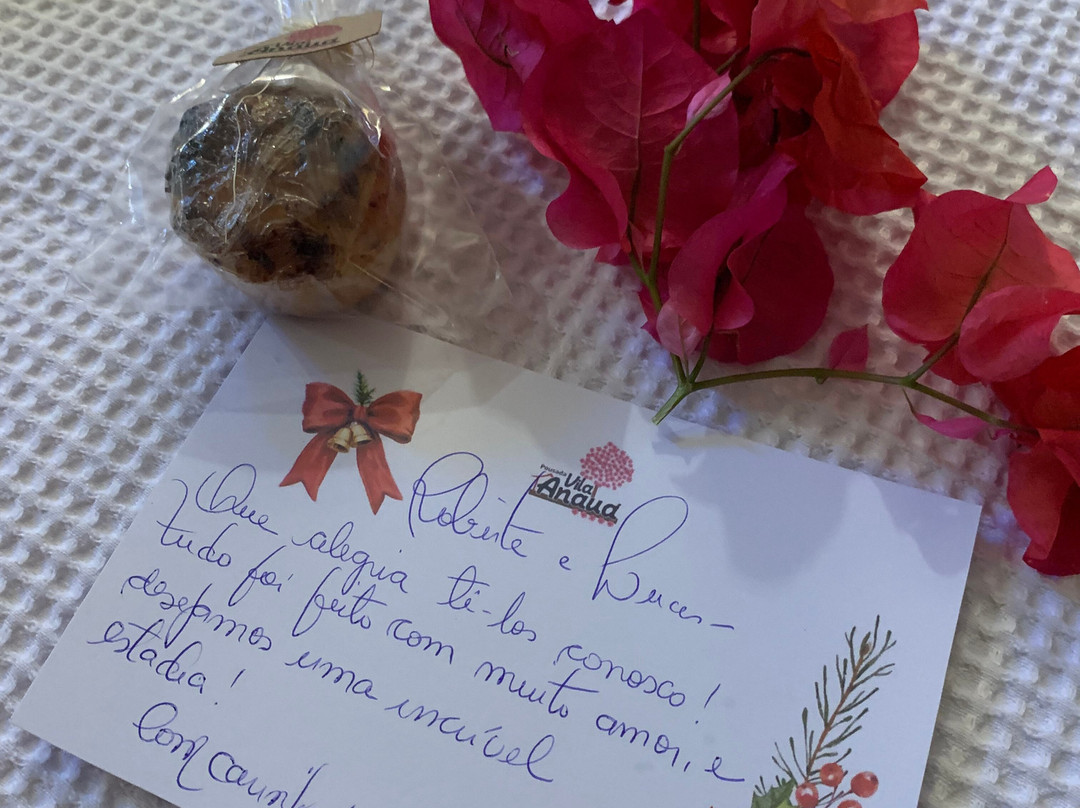 Pousada
Vila
Anauá
Roberta e
Que alegria tê-los conosco!
tudo foi feito com muito amor, e
desejamos uma incrível
estadia!
Com